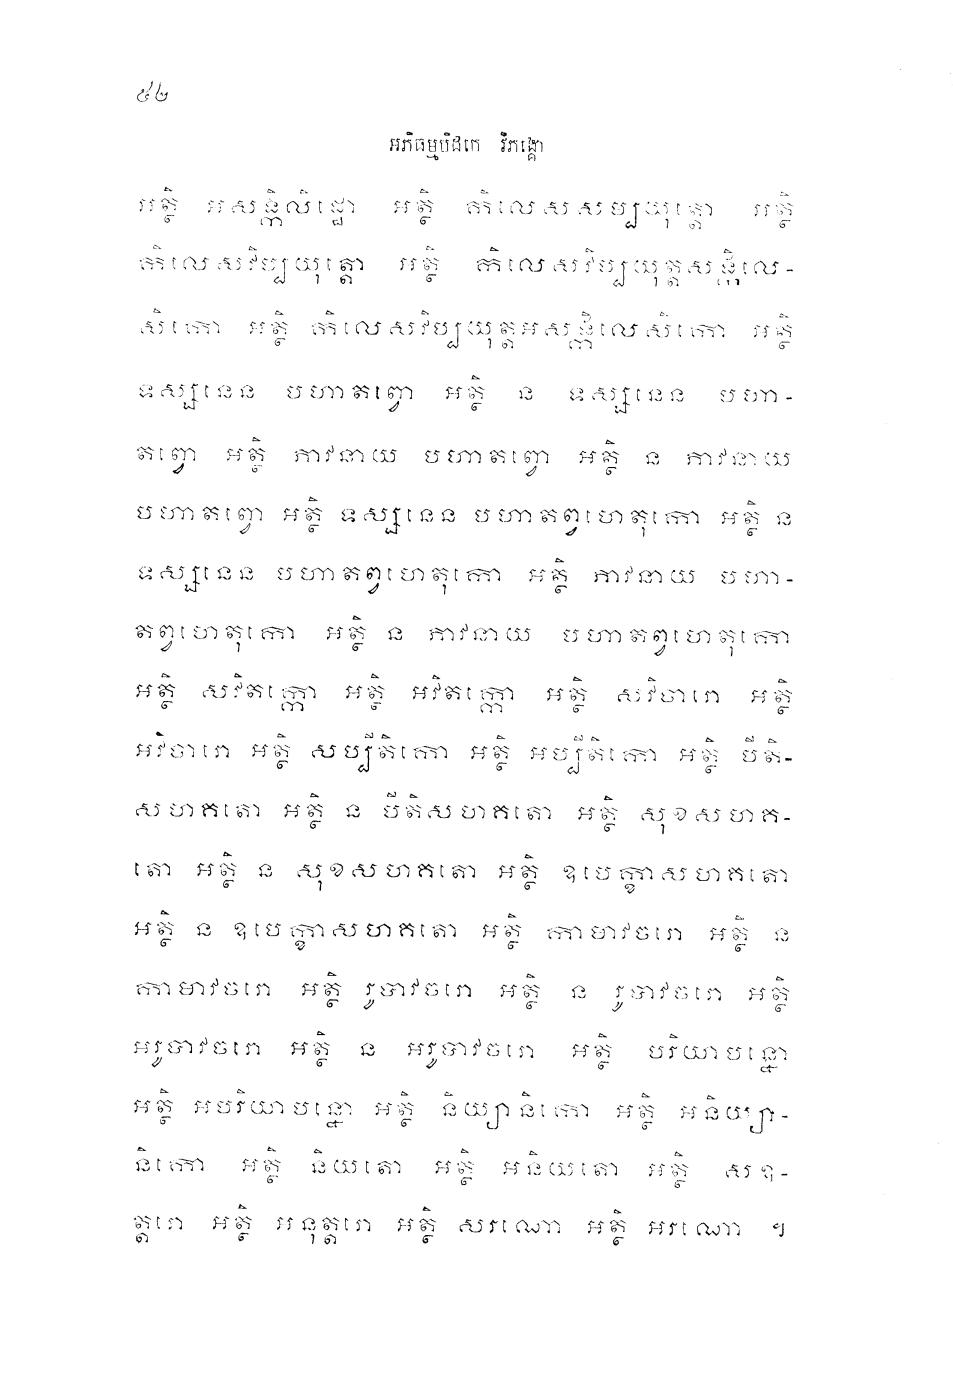 ៥២
អភិធម្មបិដកេ វិភង្គោ
អត្ថិ អសង្កិលិដ្ឋោ អត្ថិ កិលេសសម្បយុត្តោ អត្ថិ
កិលេសវិប្បយុត្តោ អត្ថិ កិលេសវិប្បយុត្តសង្កិលេ-
សិកោ អត្ថិ កិលេសវិប្បយុត្តអសង្កិលេសិកោ អត្ថិ
ទស្សនេន បហាតព្វោ អត្ថិ ន ទស្សនេន បហា-
តព្វោ អត្ថិ ភាវនាយ បហាតព្វោ អត្ថិ ន ភាវនាយ
បហាតព្វោ អត្ថិ ទស្សនេន បហាតព្វហេតុកោ អត្ថិ ន
ទស្សនេន បហាតព្វហេតុកោ អត្ថិ ភាវនាយ បហា-
តព្វហេតុកោ អត្ថិ ន ភាវនាយ បហាតព្វហេតុកោ
អត្ថិ សវិតក្កោ អត្ថិ អវិតក្កោ អត្ថិ សវិចារោ អត្ថិ
អវិចារោ អត្ថិ សប្បីតិកោ អត្ថិ អប្បីតិកោ អត្ថិ បីតិ-
សហគតោ អត្ថិ ន បីតិសហគតោ អត្ថិ សុខសហគ-
តោ អត្ថិ ន សុខសហគតោ អត្ថិ ឧបេក្ខាសហគតោ
អត្ថិ ន ឧបេក្ខាសហគតោ អត្ថិ កាមាវចរោ អត្ថិ ន
កាមាវចរោ អត្ថិ រូបាវចរោ អត្ថិ ន រូបាវចរោ អត្ថិ
អរូបាវចរោ អត្ថិ ន អរូបាវចរោ អត្ថិ បរិយាបន្នោ
អត្ថិ អបរិយាបន្នោ អត្ថិ និយ្យានិកោ អត្ថិ អនិយ្យា-
និកោ អត្ថិ និយតោ អត្ថិ អនិយតោ អត្ថិ សឧ-
ត្តរោ អត្ថិ អនុត្តរោ អត្ថិ សរណោ អត្ថិ អរណោ ។